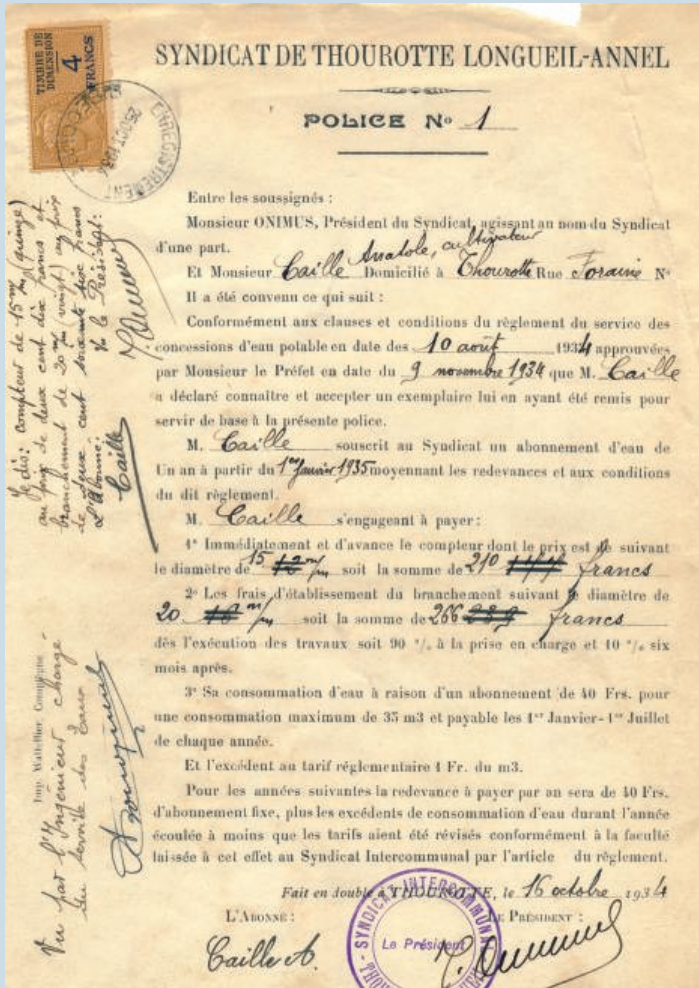 TIMBRE DE
DIMENSION
4
FRANCS
ENREGISTREMENT
SYNDICAT DE THOUROTTE LONGUEIL-ANNEL
POLICE No 1
Entre les soussignés :
Monsieur ONIMUS, Président du Syndicat, agissant au nom du Syndicat
d'une part.
Anatole, cultivateur
Et Monsieur Caille Domicilié à Thourotte Rue Foraine No
Il a été convenu ce qui suit :
Conformément aux clauses et conditions du règlement du service des
concessions d'eau potable en date des 10 août 1934 approuvées
par Monsieur le Préfet en date du 9 novembre 1934 que M. Caille
a déclaré connaître et accepter un exemplaire lui en ayant été remis pour
servir de base à la présente police.
M. Caille souscrit au Syndicat un abonnement d'eau de
Un an à partir du 1er Janvier 1935 moyennant les redevances et aux conditions
du dit règlement.
M. Caille s'engageant à payer :
1° Immédiatement et d'avance le compteur dont le prix est de suivant
le diamètre de 15 m/m soit la somme de 210 francs
2° Les frais d'établissement du branchement suivant le diamètre de
20 m/m soit la somme de 266 francs
dès l'exécution des travaux soit 90 % à la prise en charge et 10 % six
mois après.
3° Sa consommation d'eau à raison d'un abonnement de 40 Frs. pour
une consommation maximum de 35 m3 et payable les 1er Janvier - 1er Juillet
de chaque année.
Et l'excédent au tarif réglementaire 1 Fr. du m3.
Pour les années suivantes la redevance à payer par an sera de 40 Frs.
d'abonnement fixe, plus les excédents de consommation d'eau durant l'année
écoulée à moins que les tarifs aient été révisés conformément à la faculté
laissée à cet effet au Syndicat Intercommunal par l'article du règlement.
Fait en double à THOUROTTE, le 16 octobre 1934
L'ABONNÉ :
LE PRÉSIDENT :
Caille A.
SYNDICAT INTERCOMMUNAL
Le Président
Je dis: compteur de 15 m/m (quinze)
au prix de deux cent dix francs et
branchement de 20 m/m vingt) au prix
de deux cent soixante six francs
L'Abonné: Vu le Président:
Caille
Imp. Wattellier Compiègne
Vu par l'Ingénieur chargé
du Service des Eaux